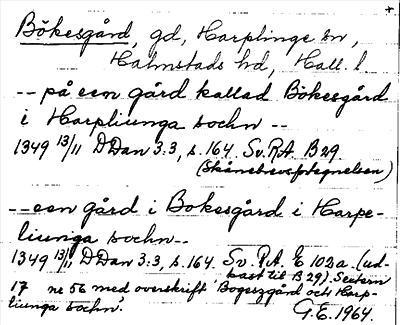 Bökesgård, gd, Harplinge sn,
Halmstads hd, Hall. l
-- på een gård kallad Bökesgård
i Harpliunga sochn --
1349 13/11 DDan 3:3, s. 164. Sv. RA. B 29
(Skånebrevsfortegnelsen)
-- een gård i Bokesgård i Harpe-
liunga sochn --
1349 13/11 DDan 3:3, s. 164. Sv. R.A. E 103a. (ud-
kast til B 29). Sextern
17 nr 56 med overskrift 'Bogeszgård och Harp-
liunga sochn'.
G.E. 1964.